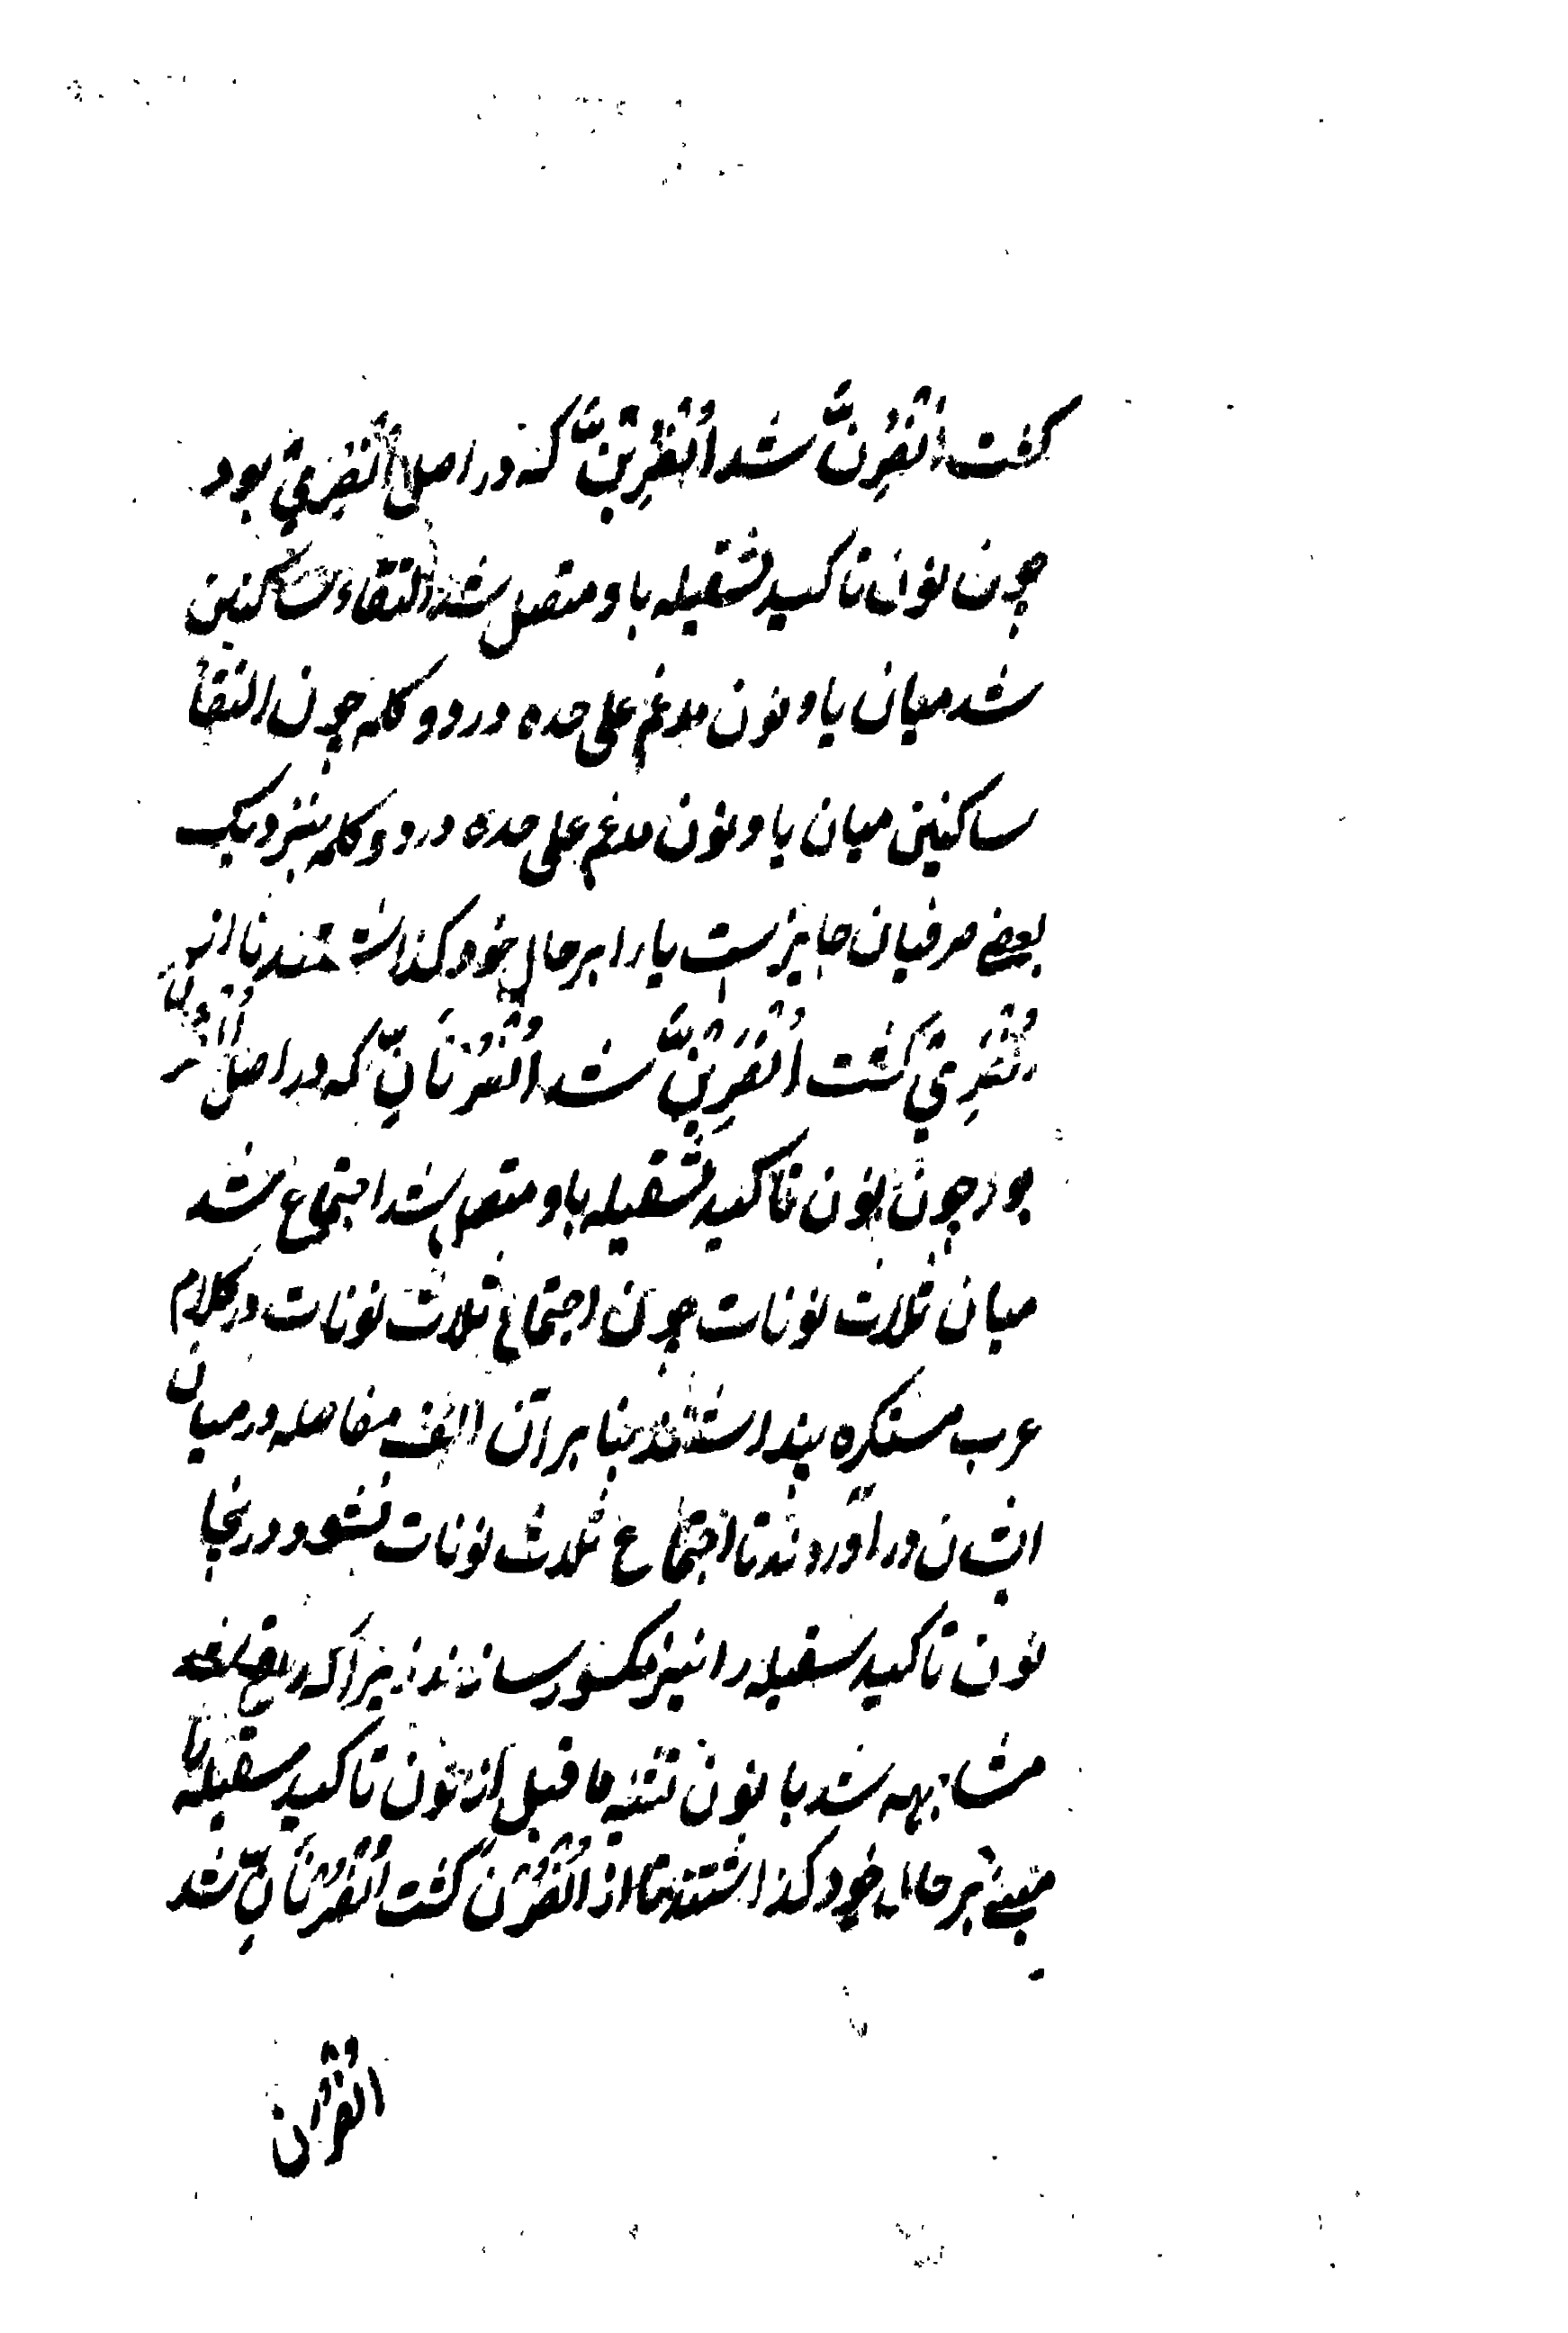 کشت انفرنّ شد انفرینّ که در اصل انفری بود
چون نون تاکید ثقیله باو متصل شد التقاء ساکنین
شد میان یا و نون مدغم علی حده در دو کلمه چون التقا
ساکنین میان یا و نون مدغم علی حده در دو کلمه بنزدیک
بعضے صرفیان جایزست یا را بر حال خود کذاشتند تا از
انفری کشت انفرینّ شد انفرنانّ که در اصل انفرن
بود چون نون تاکید ثقیله باو متصل شد اجتماع شد
میان ثلاث نونات چون اجتماع ثلاث نونات در کلام
عرب مستکره پنداشتند بنا بر آن الف مفاصله در میان
ایشان در آوردند تا اجتماع ثلاث نونات نشود درینجا
نون تاکید سقیله را نیز مکسور رسانیدند زیرا که
مشابهه شد با نون تثنیه ما قبل از نون تاکید سقیله را
مبنے بر حال خود کذاشتند تا از انفرن کشت انفرنانّ شد
انفرن